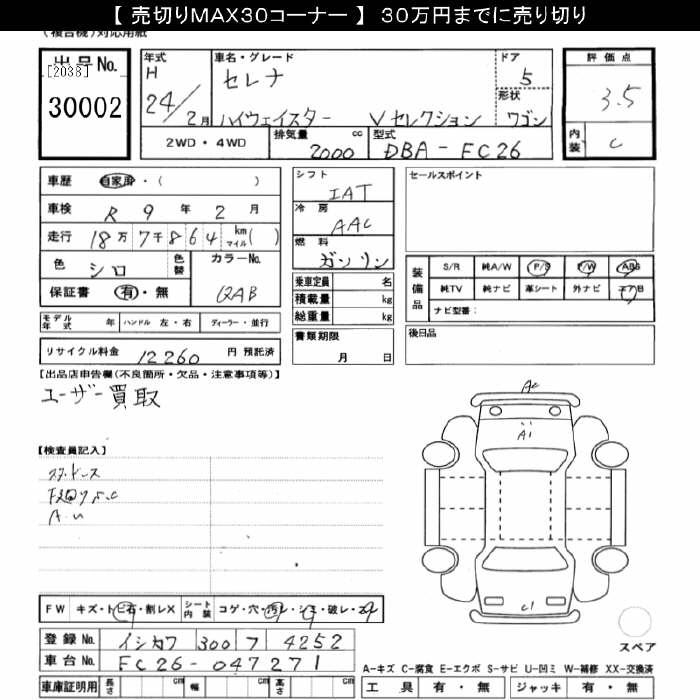 【 売切りMAX30コーナー 】 30万円までに売り切り
(複合機)対応用紙
出品No.
[2038]
30002
年式
H
24/2月
車名・グレード
セレナ
ハイウェイスター Vセレクション
ドア
5
形状
ワゴン
2WD・4WD
排気量 cc
2000
型式
DBA-FC26
評価点
3.5
内装
C
車歴 自家用・( )
車検 R 9 年 2 月
走行 18万7千864 km マイル( )
色 シロ 色替
カラーNo.
QAB
保証書 有・無
モデル年式 年 ハンドル 左・右 ディーラー・並行
リサイクル料金 12260 円 預託済
シフト
IAT
冷房
AAC
燃料
ガソリン
乗車定員 名
積載量 kg
総重量 kg
書類期限
月 日
セールスポイント
装備品
S/R 純A/W P/S P/W ABS
純TV 純ナビ 革シート 外ナビ エアB
ナビ型番:
後日品
【出品店申告欄(不良箇所・欠品・注意事項等)】
ユーザー買取
【検査員記入】
スタッドレス
A.U
AC
A1
C1
スペア
FW キズ・トビ石・割レX シート内装 コゲ・穴・汚レ・シミ・破レ・スレ
登録No. イシカワ 300 フ 4252
車台No. FC26-047271
車庫証明用 長さ cm 幅 cm 高さ cm
A-キズ C-腐食 E-エクボ S-サビ U-凹ミ W-補修 XX-交換済
工具 有・無 ジャッキ 有・無